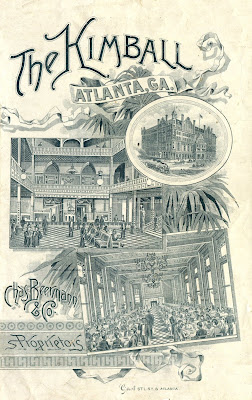 The Kimball
ATLANTA, GA.
Chas. Beermann
& Co.
Proprietors